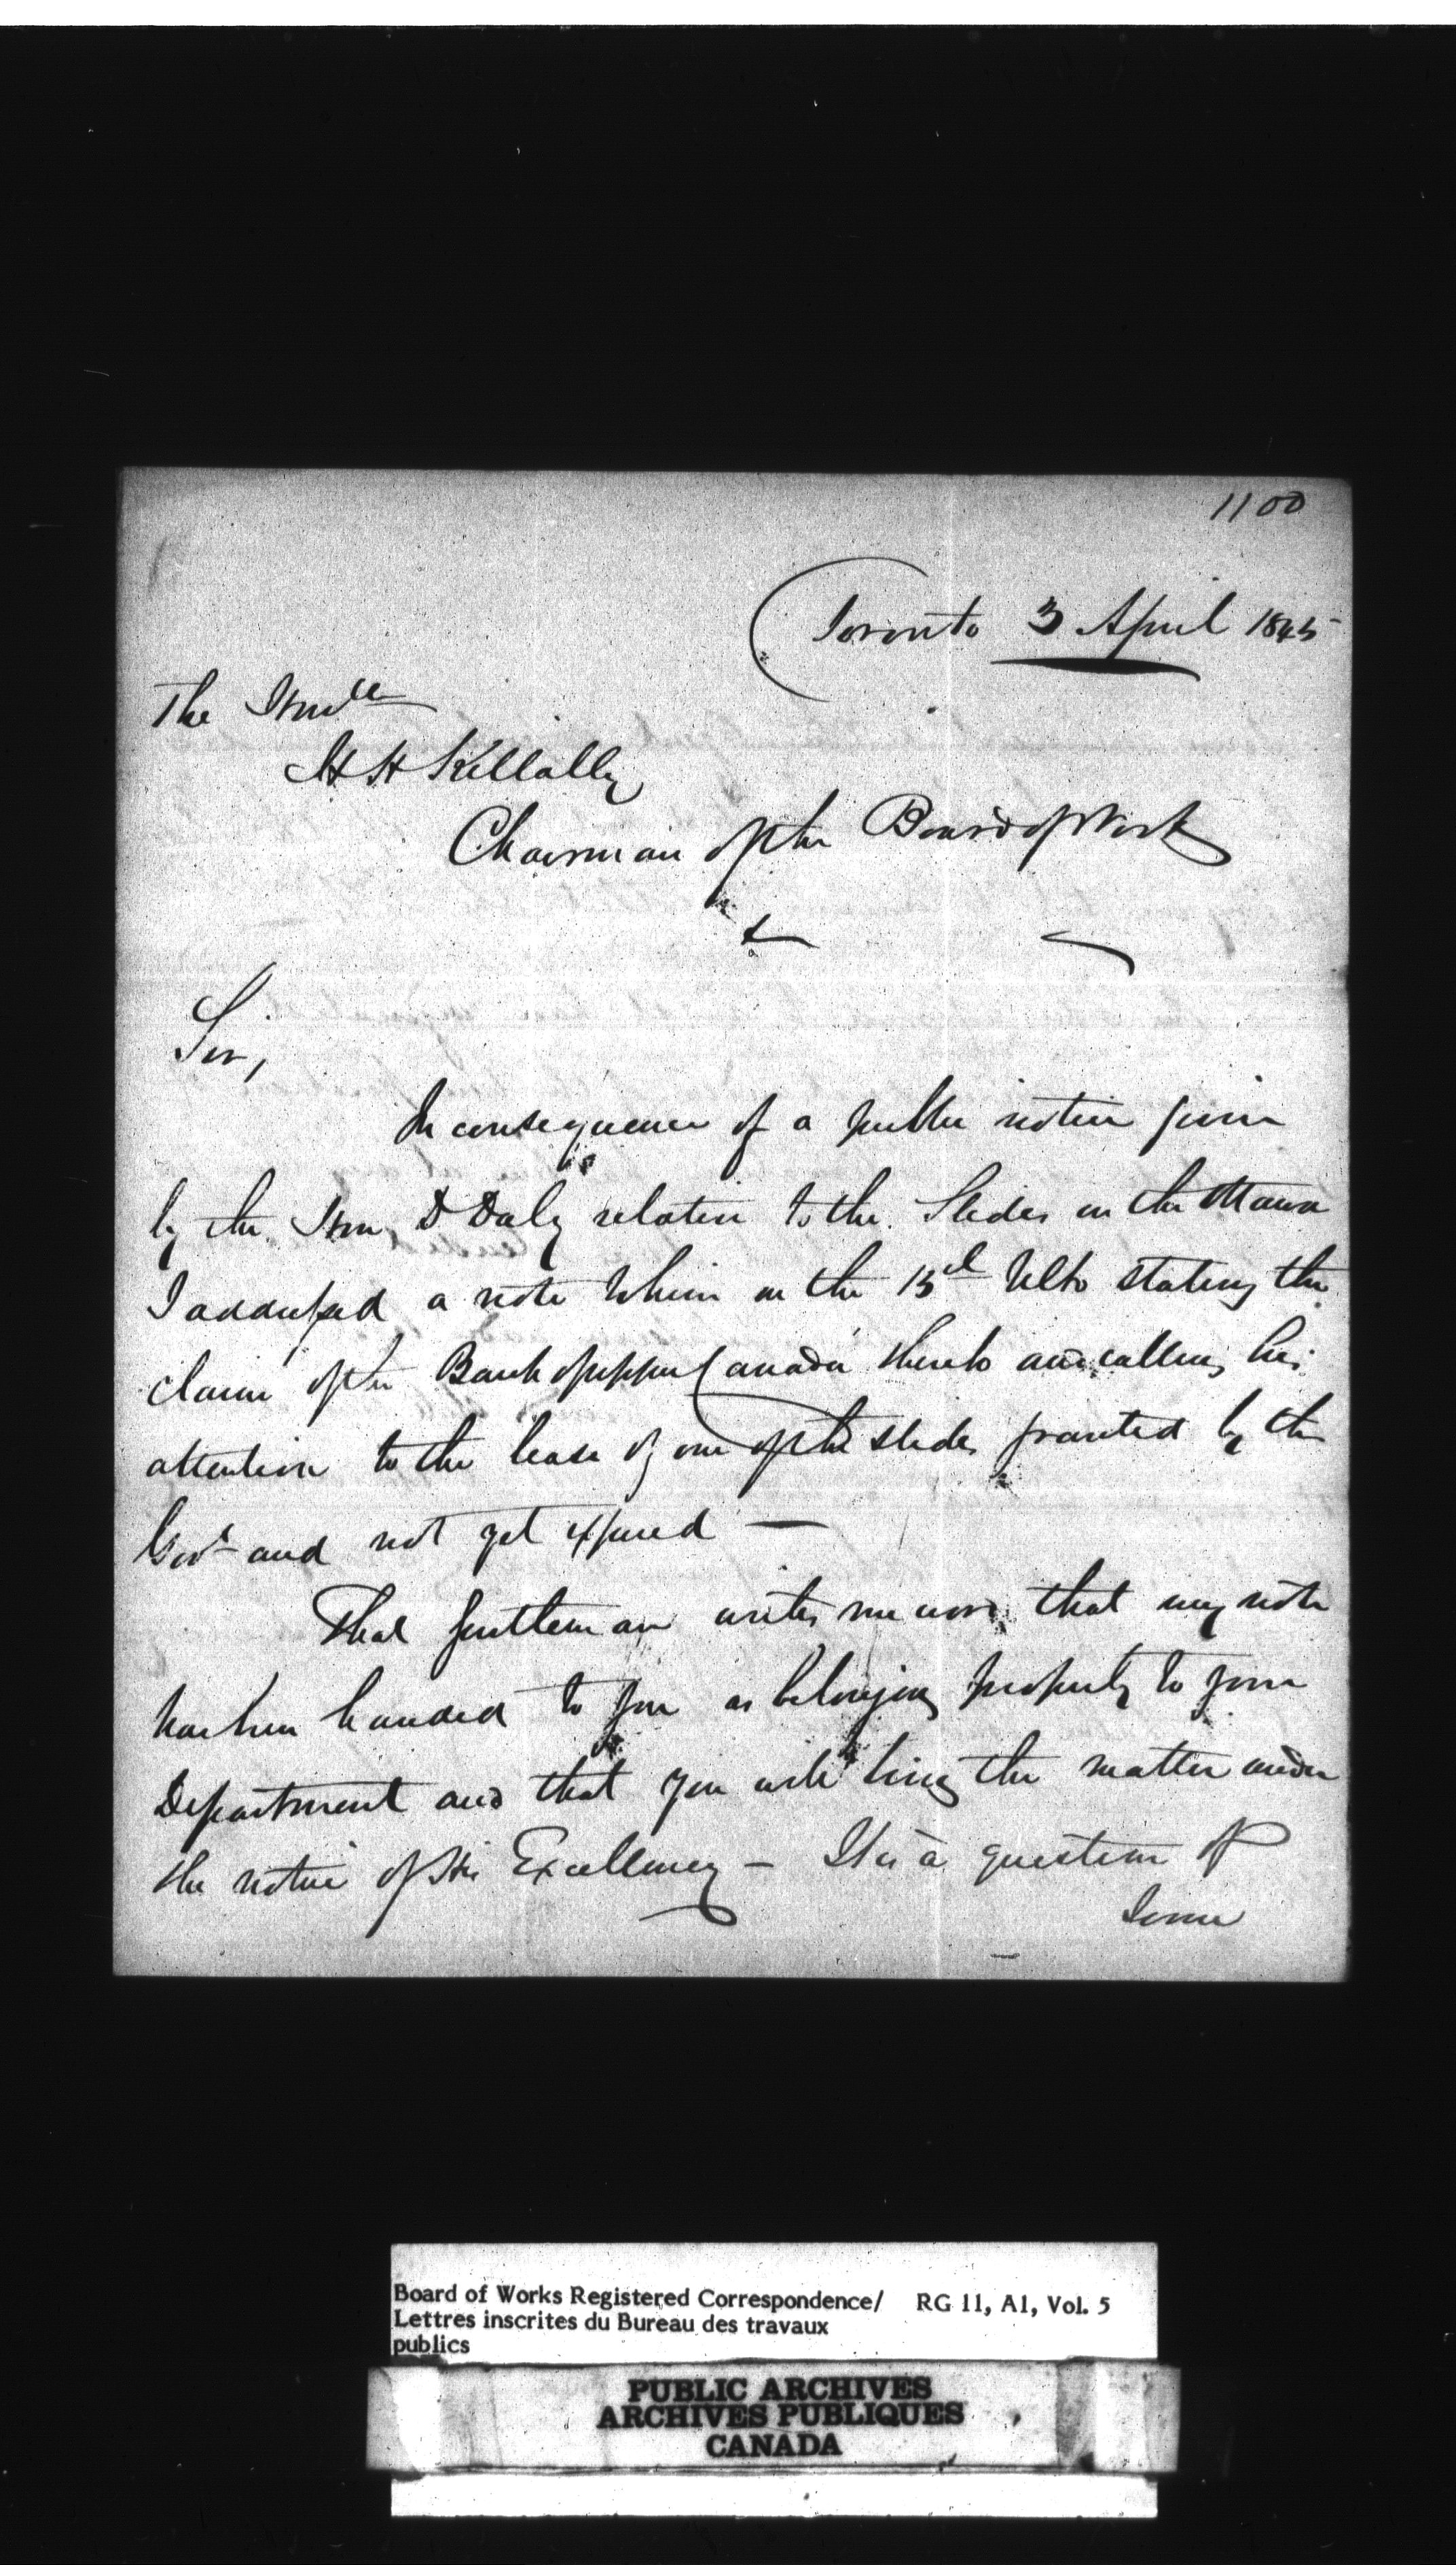 1100
Toronto 3 April 1845
The Honble
H H Killally
Chairman of the Board of Works
Sir,
In consequence of a public notice given
by the Hon. D Daly relative to the Slides on the Ottawa
I addressed a note to him on the 13th Ulto stating the
claim of the Bank of Upper Canada thereto and calling his
attention to the lease of one of the slides granted by the
Govt and not yet expired —
That gentleman writes me word that my note
has been handed to you as belonging properly to your
Department and that you will bring the matter under
the notice of His Excellency – It is a question of
some
Board of Works Registered Correspondence/ RG 11, A1, Vol. 5
Lettres inscrites du Bureau des travaux
publics
PUBLIC ARCHIVES
ARCHIVES PUBLIQUES
CANADA